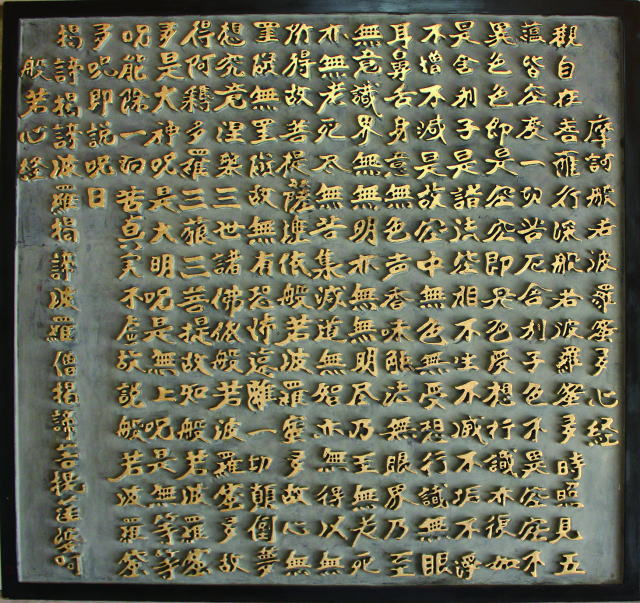 摩訶般若波羅蜜多心経
観自在菩薩行深般若波羅蜜多時照見五
蘊皆空度一切苦厄舎利子色不異空空不
異色色即是空空即是色受想行識亦復如
是舎利子是諸法空相不生不滅不垢不浄
不増不減是故空中無色無受想行識無眼
耳鼻舌身意無色声香味触法無眼界乃至
無意識界無無明亦無無明尽乃至無老死
亦無老死尽無苦集滅道無智亦無得以無
所得故菩提薩埵依般若波羅蜜多故心無
罣礙無罣礙故無有恐怖遠離一切顛倒夢
想究竟涅槃三世諸佛依般若波羅蜜多故
得阿耨多羅三藐三菩提故知般若波羅蜜
多是大神呪是大明呪是無上呪是無等等
呪能除一切苦真実不虚故説般若波羅蜜
多呪即説呪曰
掲諦掲諦波羅掲諦波羅僧掲諦菩提薩婆呵
般若心経